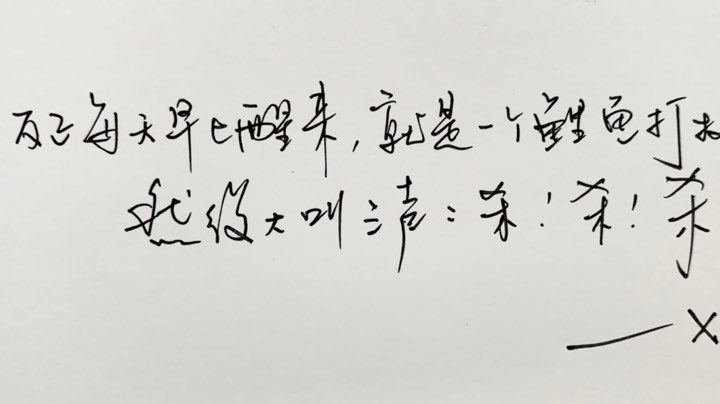 反正每天早上醒来,就是一个鲤鱼打
然后大叫三声:杀!杀!杀
— X